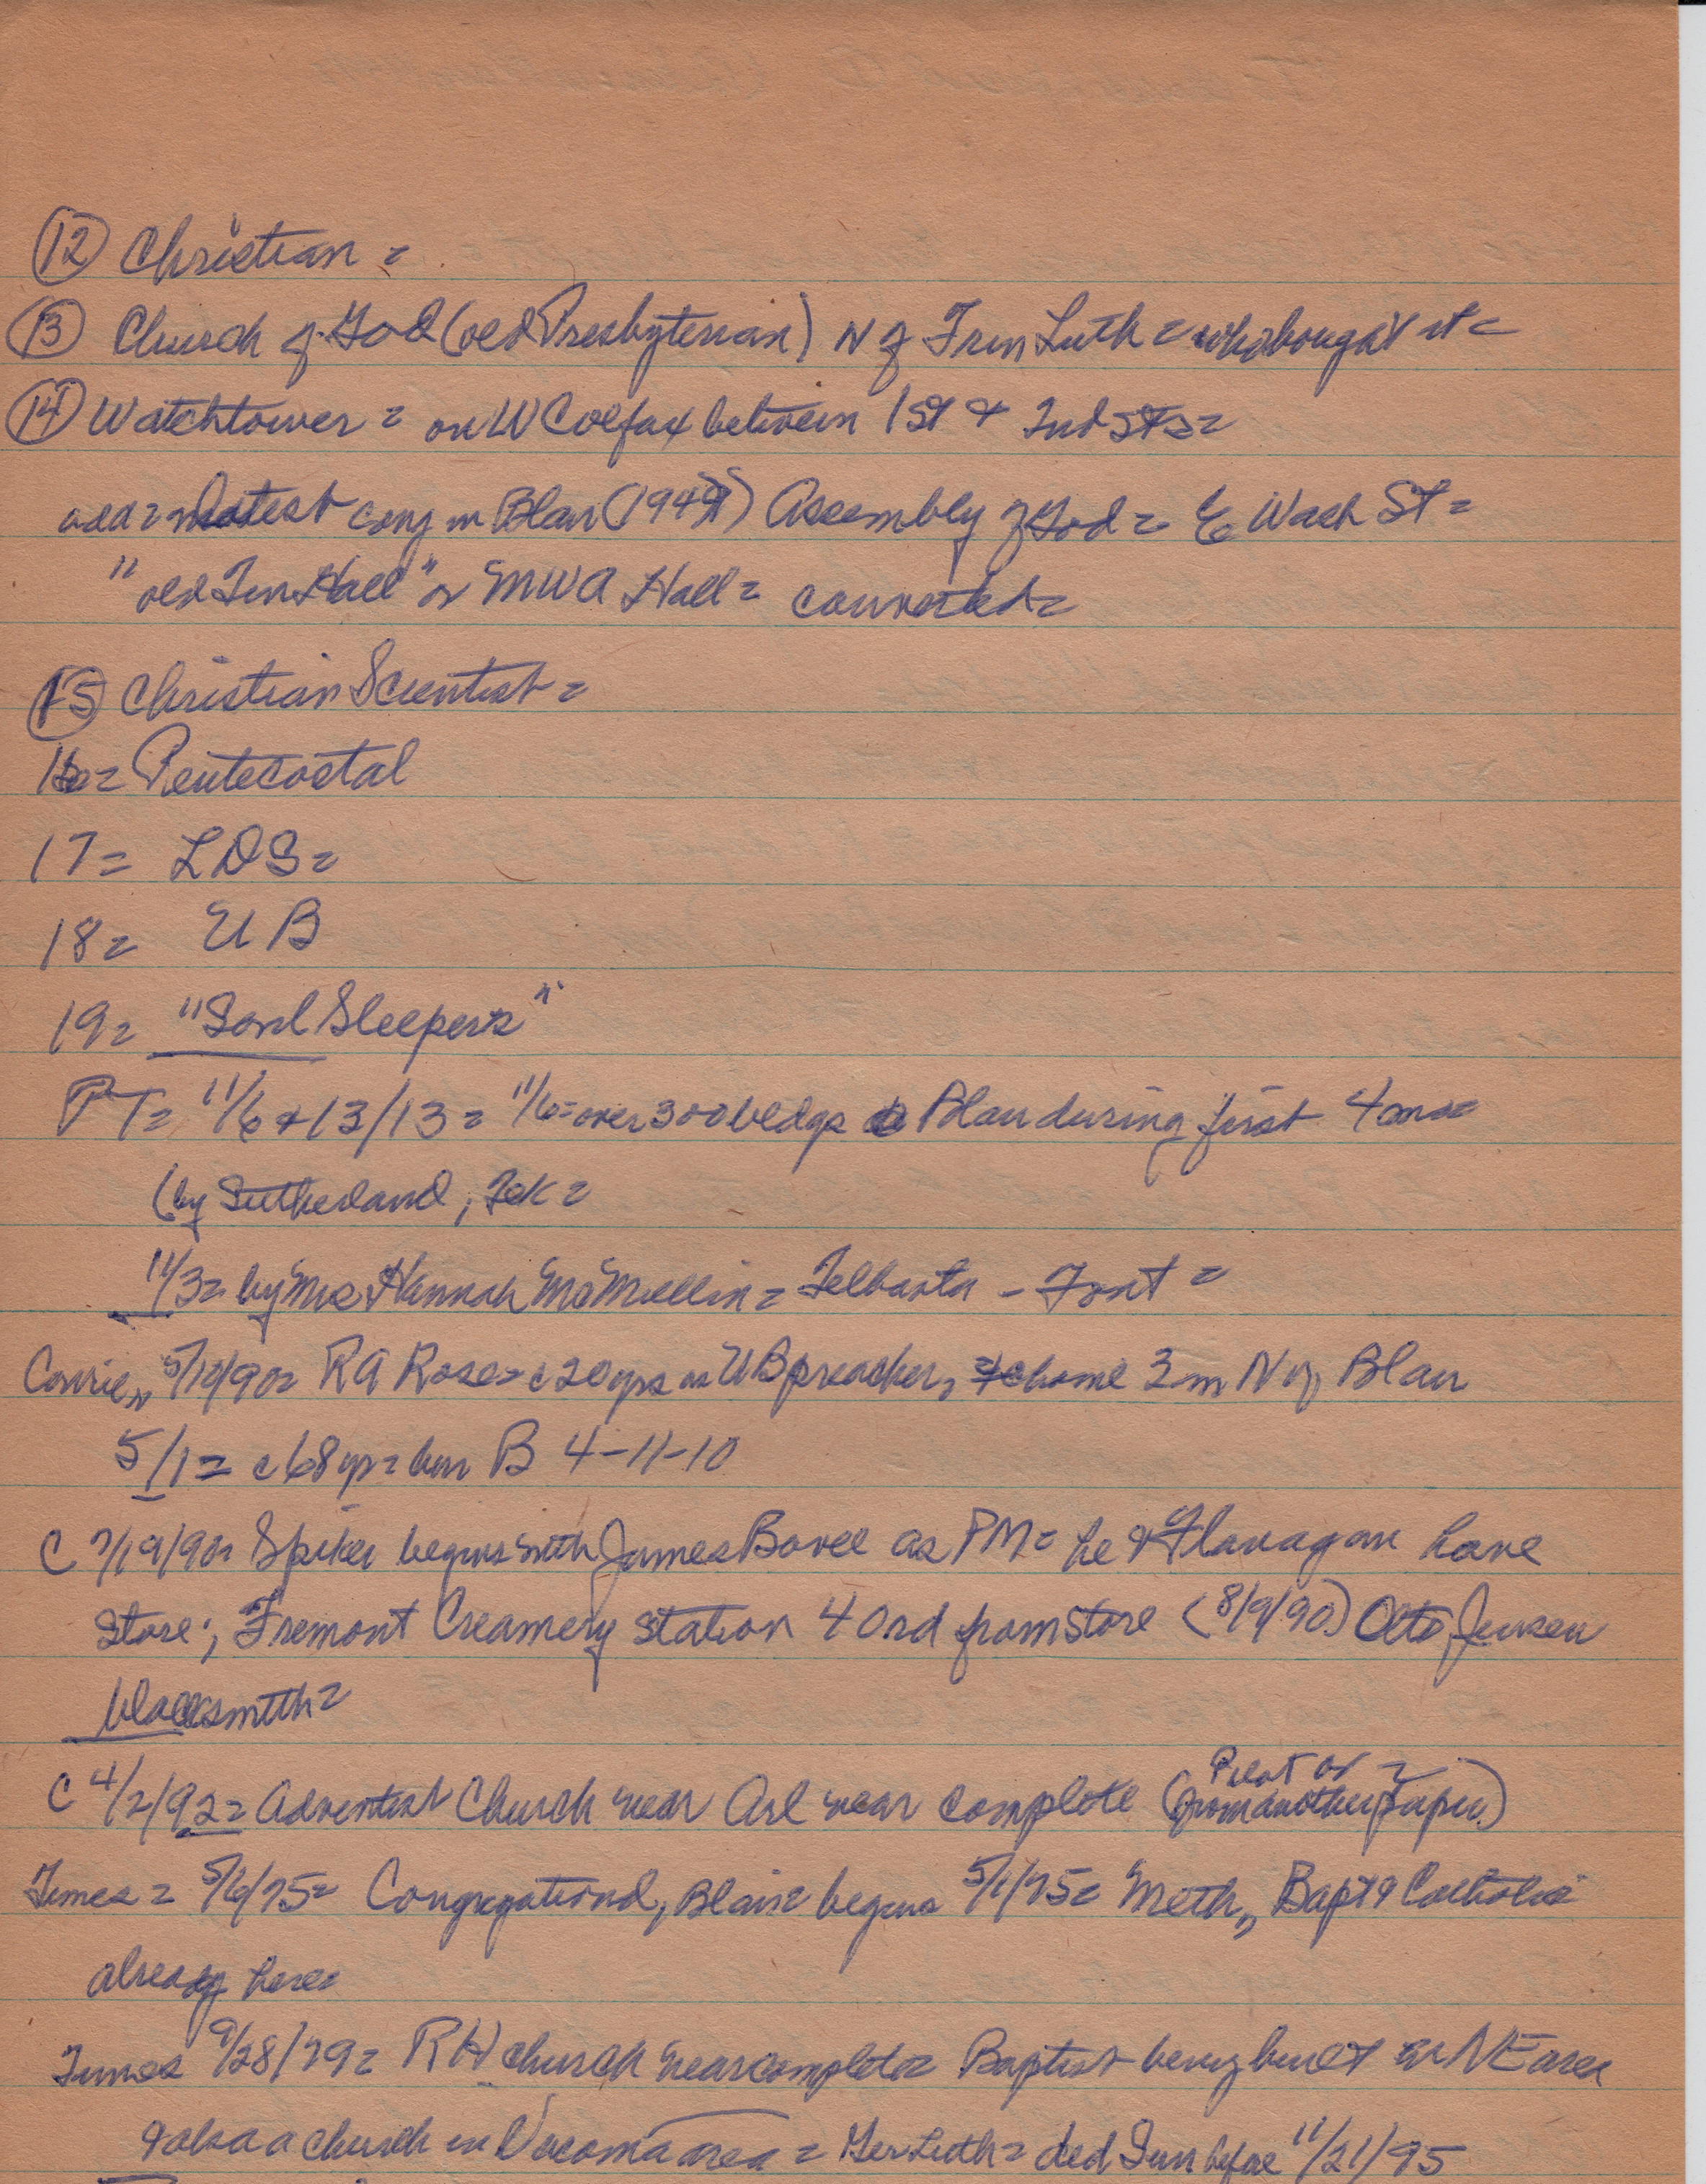 (12) Christian =
(13) Church of God (old Presbyterian) N of Luth = who bought it =
(14) Watchtower = on W Colfax between 1st & 2nd sts =
add = latest cong in Blair Assembly of God = E Wash St =
"old Hall" or MWA Hall = converted =
(15) Christian Scientist =
16 = Pentecostal
17 = LDS =
18 = U B
19 = "Soul Sleepers"
PT = 11/6 & 13/13 = 11/6 = over 300 bldgs Blair during first 4 mos
(by Sutherland, Tek =
11/3 = by Mrs Hannah McMullin = Telbasta - Font =
Courier, 5/ /90 = RA Rose = c 20 yrs as UB preacher, home 3 m N of Blair
5/1 = c 68 yrs = B 4-11-10
C 7/19/90 = Spiker begins with James Bovee as PM = he & Flanagan have
store; Fremont Creamery station 40 rd from store (8/9/90) Otto Jensen
blacksmith =
C 4/2/92 = Adventist Church near Arl near complete (Pilot or = from another paper)
Times = 5/6/75 = Congregational, Blair = begins 5/1/75 = Meth, Bapt & Catholic
already here =
Times 9/28/79 = RH church near complete = Baptist being built in NE area
& also a church in Vacoma area = Ger Luth = ded Sun before 11/21/95